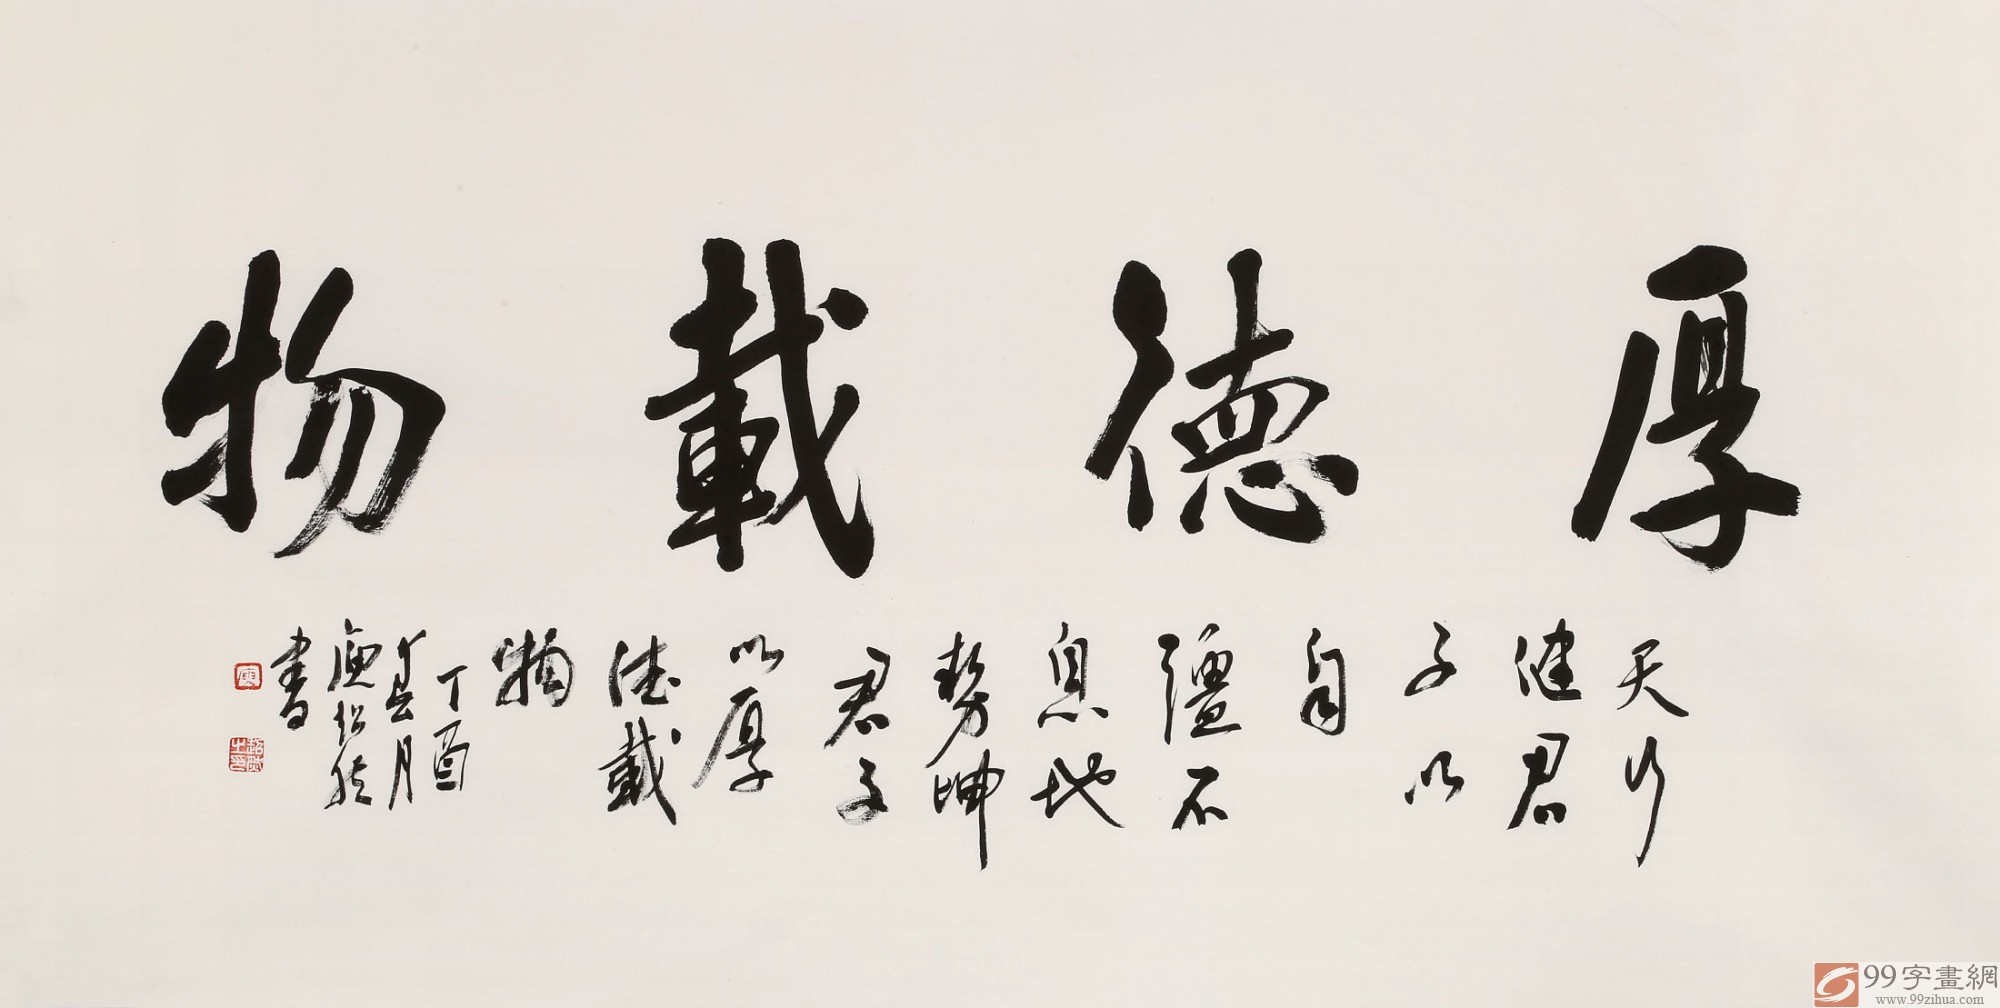 厚德載物
天行
健君
子以
自
彊不
息地
勢坤
君子
以厚
德載
物
丁酉
月
書
99字畫網
www.99zihua.com